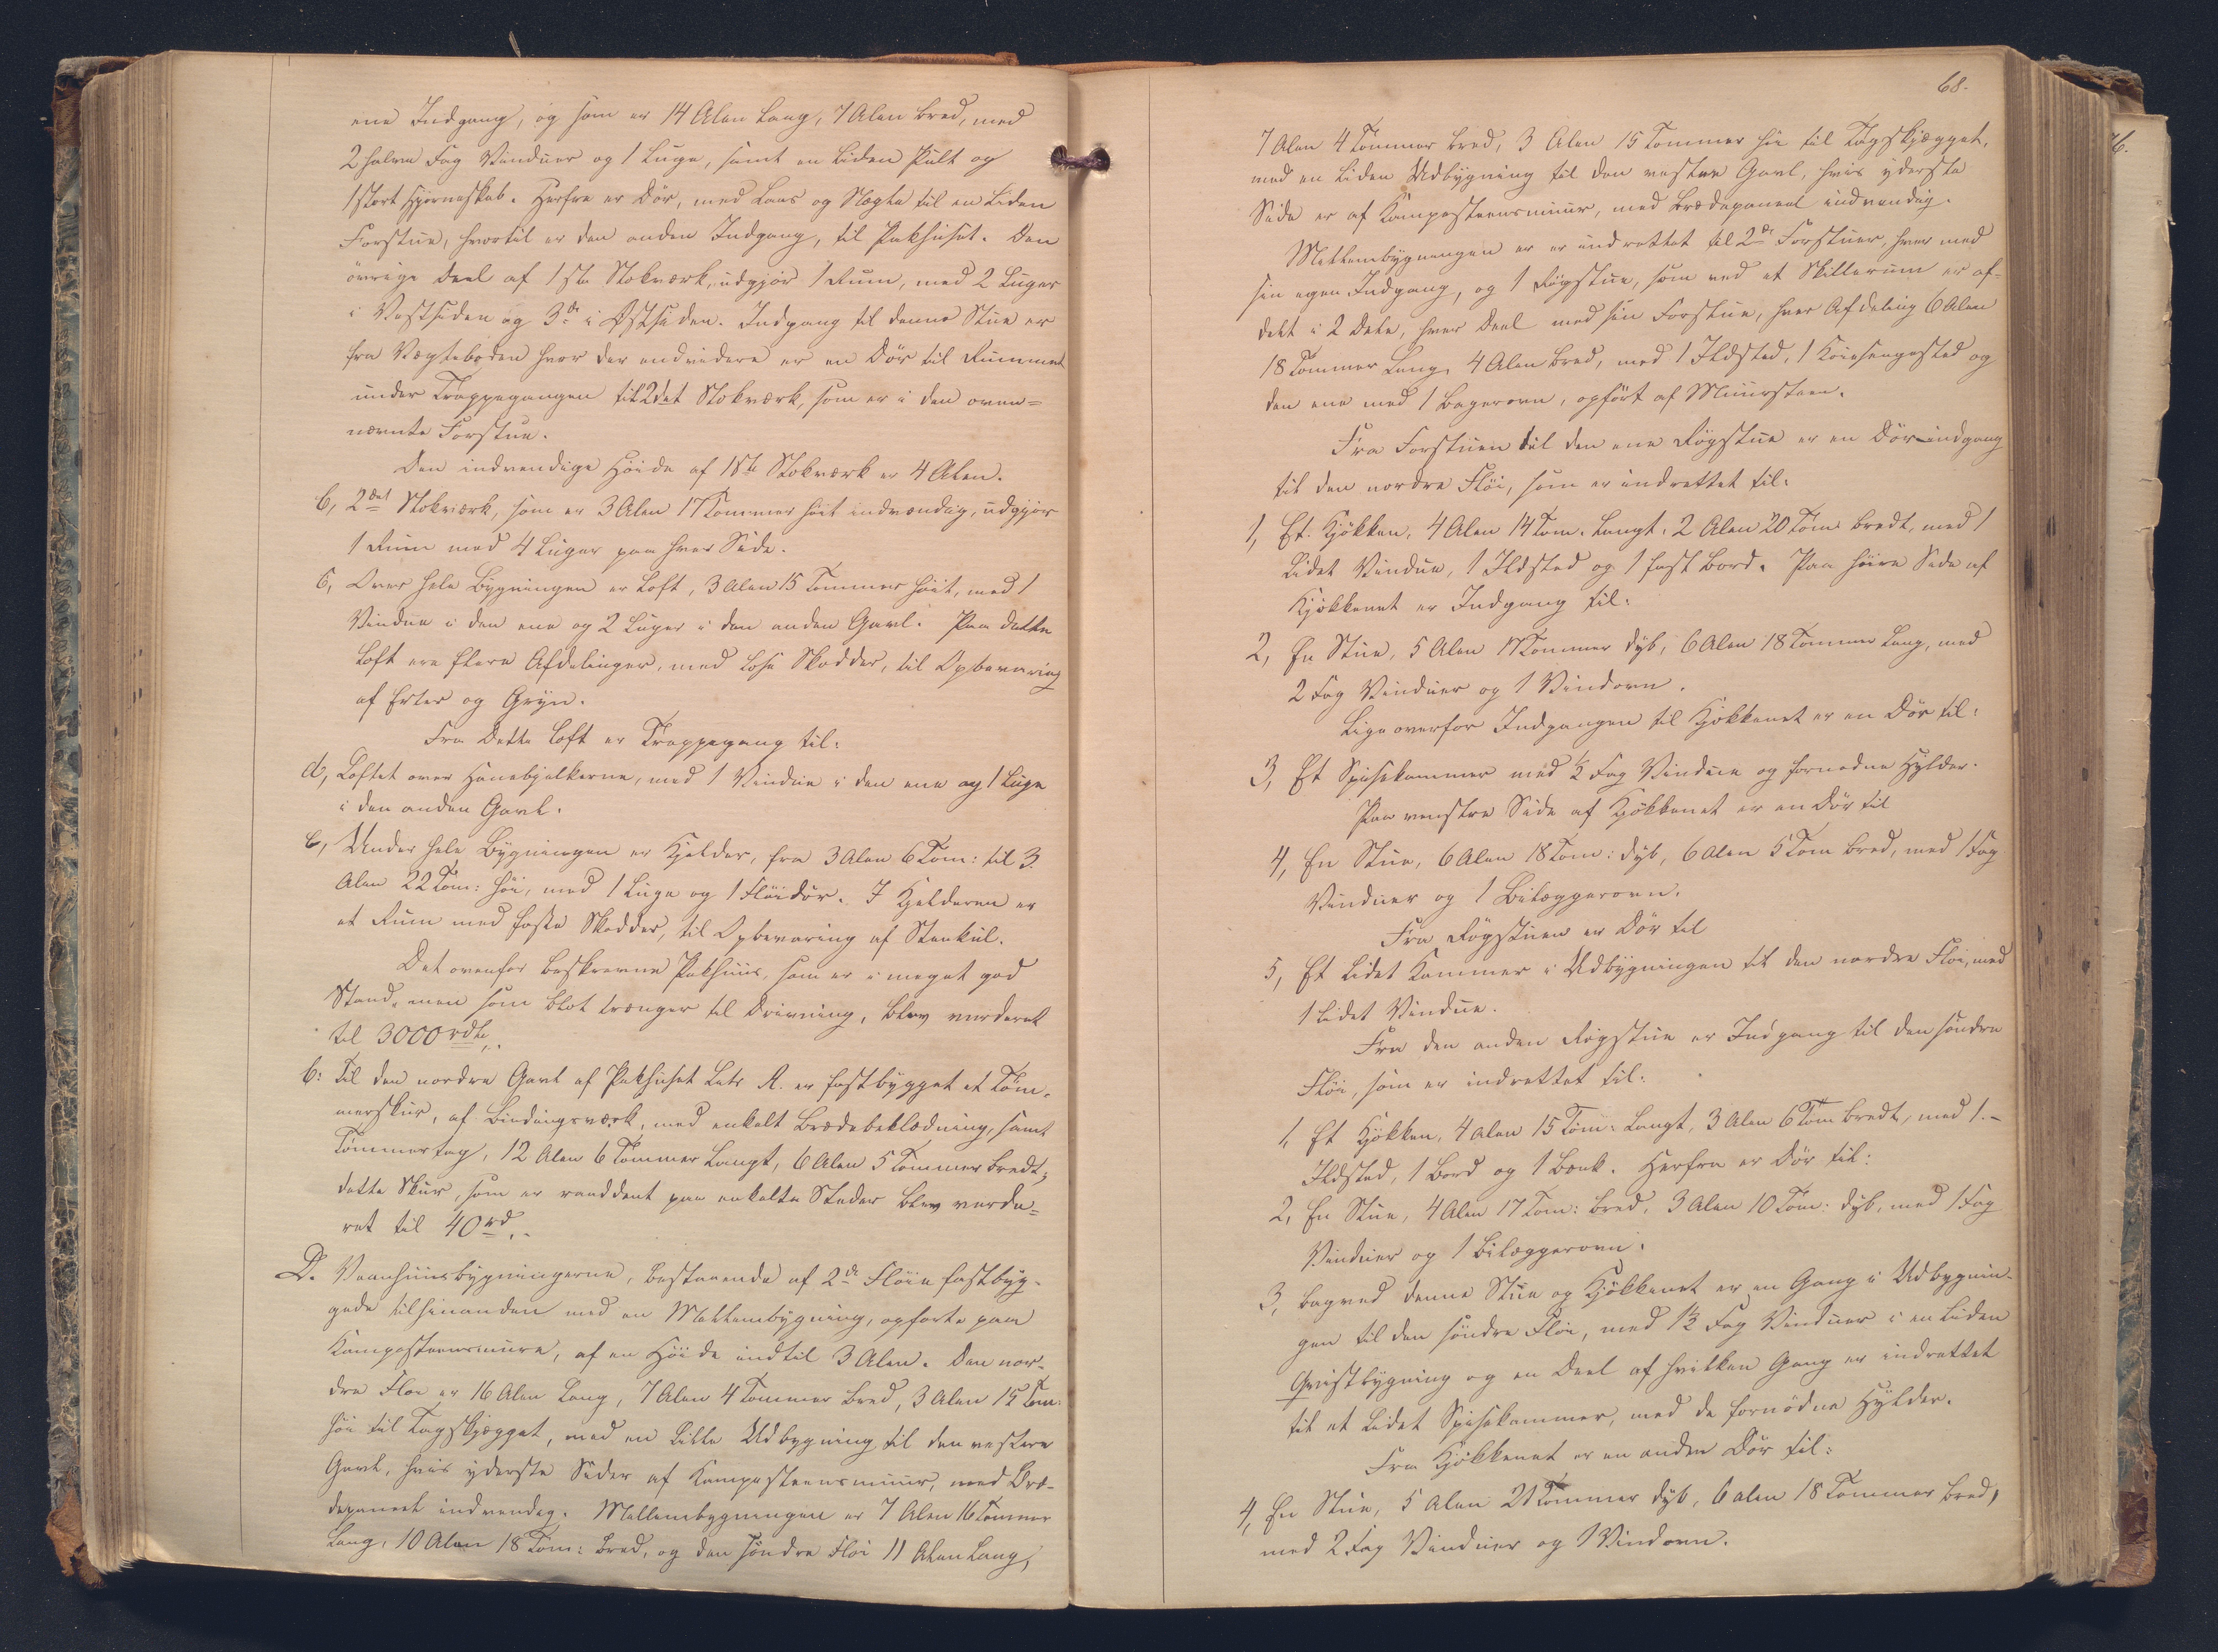 ene Indgang, og som er 14 Alen lang, 7 Alen bred, med
2 halve Fag Vinduer og 1 Luge, samt en liden Pult og
1 stort Hjørneskab. Herfra er Dör, med Laas og Nøgle til en liden
Forstue, hvortil er den anden Indgang, til Pakhuset. Den
övrige Deel af 1ste Stokværk, udgjör 1 Rum, med 2 Luger
i Vestsiden og 3de i Østsiden. Indgang til denne Stue er
fra Vægteboden hvor der endvidere er en Dör til Rummet
under Trappegangen til 2det Stokværk, som er i den oven=
nævnte Forstue.
Den indvendige Höide af 1ste Stokværk er 4 Alen.
b, 2det Stokværk, som er 3 Alen 17 Tommer höit indvendig, udgjör
1 Rum med 4 Luger paa hver Side.
c, Over hele Bygningen er Loft, 3 Alen 15 Tommer höit, med 1
Vindue i den ene og 2 Luger i den anden Gavl. Paa dette
Loft ere flere Afdelinger, med lose Skodder, til Opbevaring
af Erter og Gryn.
Fra Dette Loft er Trappegang til:
d, Loftet over Hanebjelkerne, med 1 Vindue i den ene og 1 Luge
i den anden Gavl.
e, Under hele Bygningen er Kjelder, fra 3 Alen 6 Tom: til 3
Alen 22 Tom: höi, med 1 Luge og 1 Flöidör. I Kjelderen er
et Rum med faste Skodder, til Opbevaring af Steenkul.
Det ovenfor beskrevne Pakhuus, som er i meget god
Stand, men som blot trænger til Drivning, blev vurderet
til 3000 rdlr.
b: Til den nordre Gavl af Pakhuset Litr A. er fastbygget et Töm-
merskur, af Bindingsværk, med enkelt Brædebeklædning, samt
Tömmertag, 12 Alen 6 Tommer langt, 6 Alen 5 Tommer bredt;
dette Skur, som er raaddent paa enkelte Steder blev vurde=
ret til 40 rd.
D. Vaanhuusbygningerne, bestaaende af 2de Flöie fastbyg-
gede tilhinanden med en Mellembygning, opförte paa
Kampesteensmure, af en Höide indtil 3 Alen. Den nor-
dre Flöi er 16 Alen lang, 7 Alen 4 Tommer bred, 3 Alen 15 Tom:
höi til Tagskjægget, med en lille Udbygning til den vestere
Gavl, hvis yderste Sider af Kampesteensmuur, med Bræ-
depaneel indvendig. Mellembygningen er 7 Alen 16 Tommer
lang, 10 Alen 18 Tom: bred, og den söndre Flöi 11 Alen lang,
68.
7 Alen 4 Tommer bred, 3 Alen 15 Tommer höi til Tagskjægget,
med en liden Udbygning til den vestre Gavl, hvis yderste
Side er af Kampesteensmuur, med Brædepaneel indvendig.
Mellembygningen er er indrettet til 2de Forstuer, hver med
sin egen Indgang, og 1 Rögstue, som ved et Skillerum er af-
delt i 2 Dele, hver Deel med sin Forstue, hver Afdeling 6 Alen
18 Tommer lang, 4 Alen bred, med 1 Ildsted, 1 Köiesengested og
den ene med 1 Bagerovn, opfört af Muursteen.
Fra Forstuen til den ene Rögstue er en Dör indgang
til den nordre Flöi, som er indrettet til:
1, Et Kjökken, 4 Alen 14 Tom. langt, 2 Alen 20 Tom bredt, med 1
lidet Vindue, 1 Ildsted og 1 fast Bord. Paa höire Side af
Kjökkenet er Indgang til:
2, En Stue, 5 Alen 17 Tommer dyb, 6 Alen 18 Tommer lang, med
2 Fag Vinduer og 1 Vindovn.
Lige overfor Indgangen til Kjökkenet er en Dör til:
3, Et Spisekammer med ½ Fag Vindue og fornødne Hylder.
Paa venstre Side af Kjökkenet er en Dör til
4, En Stue, 6 Alen 18 Tom: dyb, 6 Alen 5 Tom bred, med 1 Fag
Vinduer og 1 Bilæggerovn.
Fra Rögstuen er Dör til
5, Et lidet Kammer i Udbygningen til den nordre Flöi, med
1 lidet Vindue.
Fra den anden Rögstue er Indgang til den söndre
Flöi, som er indrettet til:
1, Et Kjökken, 4 Alen 15 Tom: langt, 3 Alen 6 Tom bredt, med 1.-
Ildsted, 1 Bord og 1 Bænk. Herfra er Dör til:
2, En Stue, 4 Alen 17 Tom: bred, 3 Alen 10 Tom: dyb, med 1 Fag
Vinduer og 1 Bilæggerovn.
3, Bagved denne Stue og Kjökkenet er en Gang i Udbygnin-
gen til den söndre Flöi, med 1½ Fag Vinduer i en liden
Qvistbygning og en Deel af hvilken Gang er indrettet
til et lidet Spisekammer, med de fornödne Hylder.
Fra Kjökkenet er en anden Dör til:
4, En Stue, 5 Alen 21 Tommer dyb, 6 Alen 18 Tommer bred,
med 2 Fag Vinduer og 1 Vindovn.